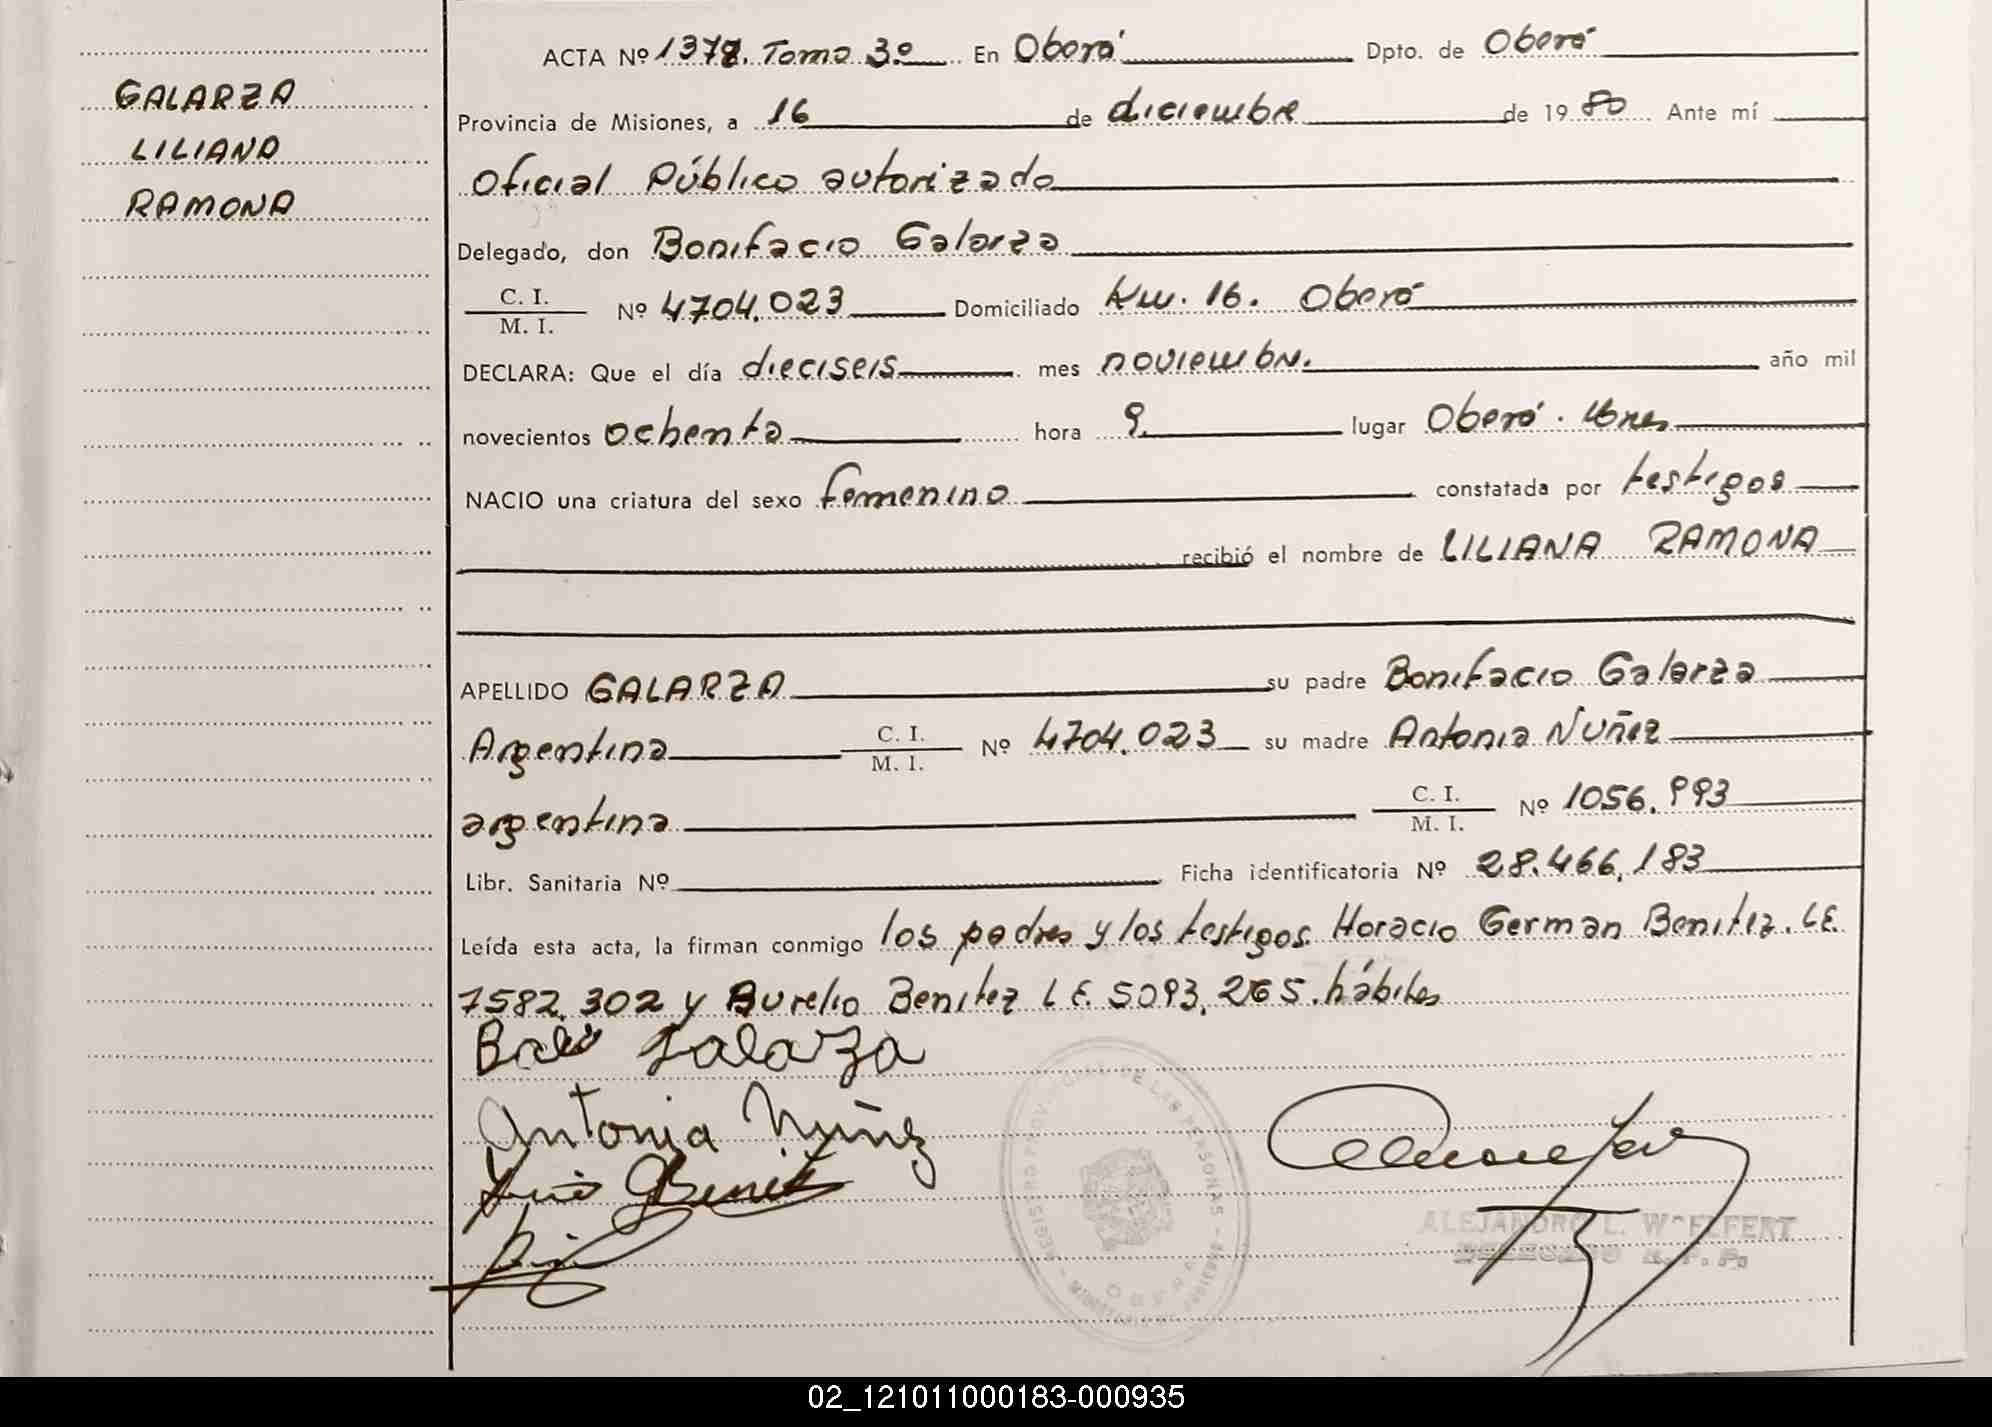 GALARZA
LILIANA
RAMONA
ACTA Nº 1378. Tomo 3º En Oberá Dpto. de Oberá
Provincia de Misiones, a 16 de diciembre de 1980 Ante mí
Oficial Público autorizado
Delegado, don Bonifacio Galarza
C. I. / M. I. Nº 4704.023 Domiciliado Km. 16. Oberá
DECLARA: Que el día dieciseis mes noviembre año mil
novecientos ochenta hora 9 lugar Oberá.
NACIO una criatura del sexo femenino constatada por testigos
recibió el nombre de LILIANA RAMONA
APELLIDO GALARZA su padre Bonifacio Galarza
Argentina C. I. / M. I. Nº 4704.023 su madre Antonia Nuñez
argentina C. I. / M. I. Nº 1056.993
Libr. Sanitaria Nº Ficha identificatoria Nº 28.466,183
Leída esta acta, la firman conmigo los padres y los testigos Horacio German Benitez. L.E.
7582,302 y Aurelio Benitez L.E. 5093,265. hábiles
Galarza
Antonia Nuñez
REGISTRO PROVINCIAL DE LAS PERSONAS
ALEJANDRO L. WOELFERT
DELEGADO R. P. P.
02_121011000183-000935